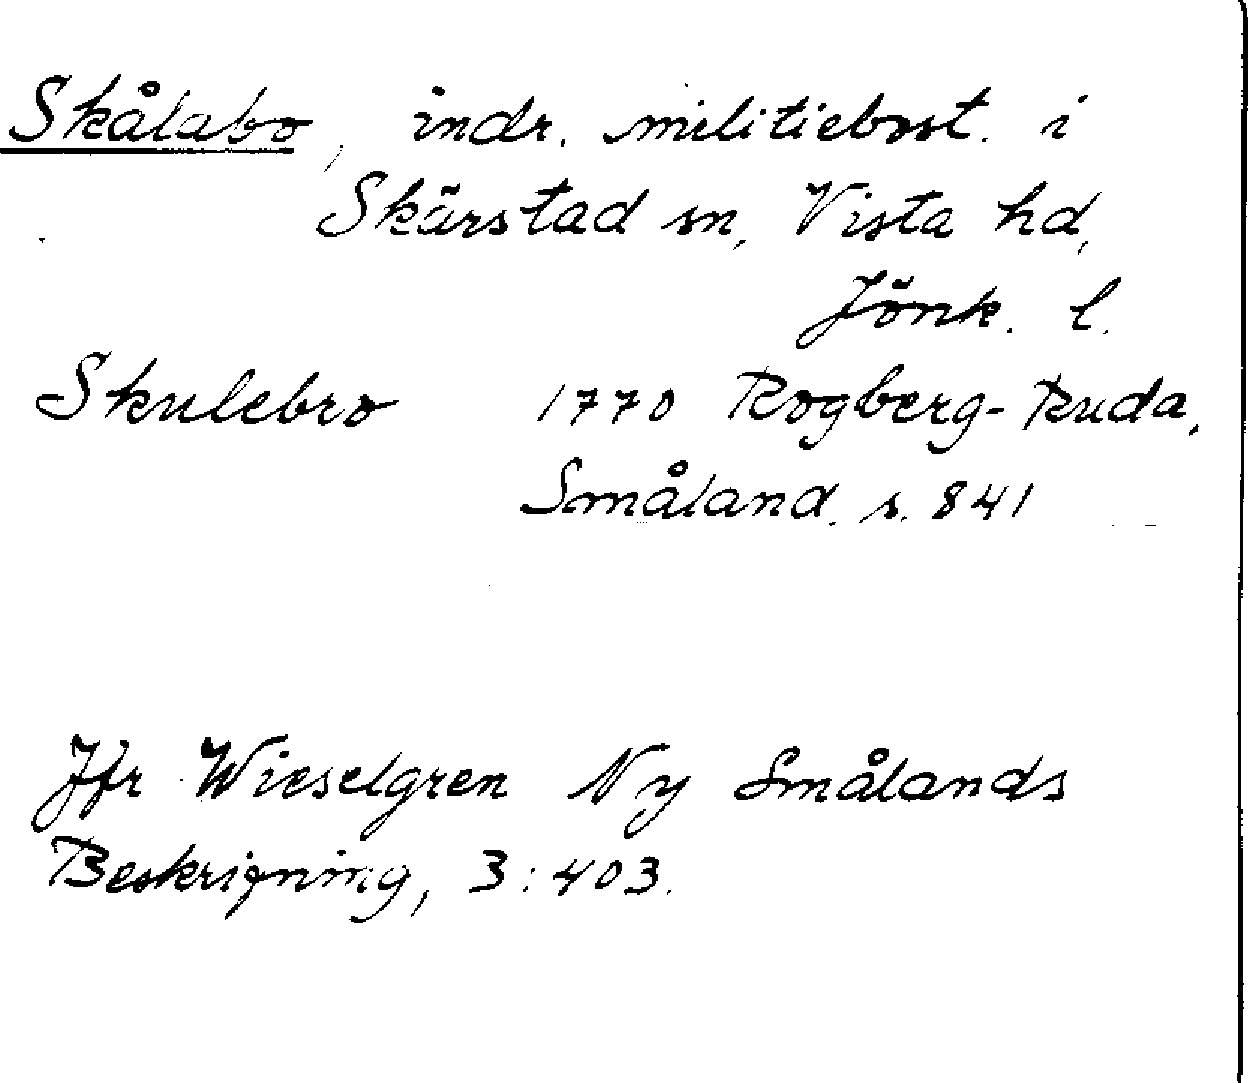 Skålabo, indr. militiebost. i
Skärstad sn, Vista hd,
Jönk. l.
Skulebro 1770 Rogberg-Ruda,
Småland. s. 841
Jfr Wieselgren Ny Smålands
Beskrifning, 3:403.